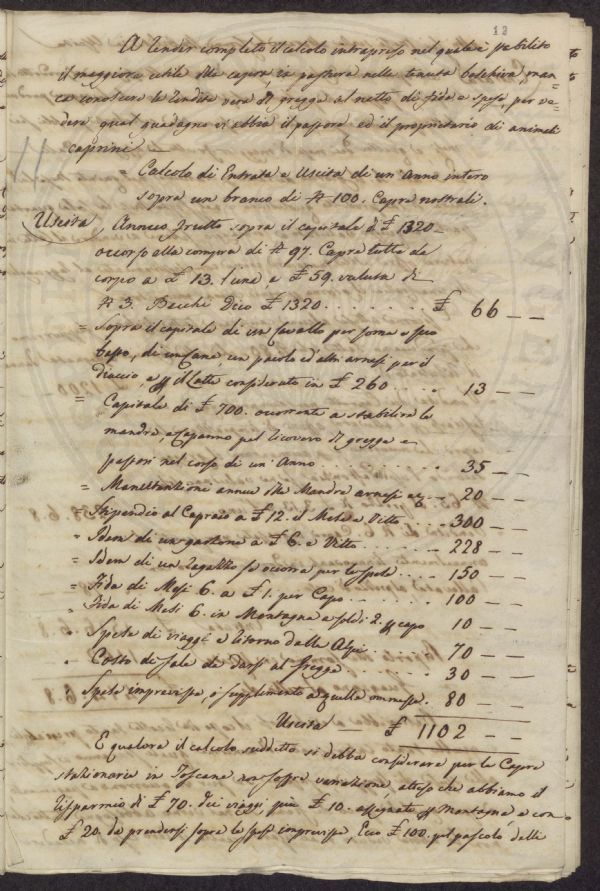 12
A render completo il calcolo intrapreso nel quale è stabilito
il maggiore utile delle capre in pastura nella tenuta boschiva, man=
ca conoscere le rendite vere di gregge al netto di fida e spese, per ve=
dere qual guadagno vi abbia il pastore ed il proprietario di animali
caprini
= Calcolo di Entrata e Uscita di un Anno intero
sopra un branco di N 100. Capre nostrali.
Uscita Annuo frutto sopra il capitale di £ 1320
occorso alla compra di N 97. Capre tutte da
corpo a £ 13. l'una e £ 59. valuta di
N 3. Becchi dico £ 1320 . . . . . . . . £ 66 — —
= Sopra il capitale di un Cavallo per soma e suo
basto, di un Cane un paiolo ed altri arnesi per il
diaccio e p il Latte considerato in £ 260 . . . . 13 — —
= Capitale di £ 700. ocorrente a stabilire le
mandre, e Capanno pel ricovero di gregge e
pastori nel corso di un Anno . . . . . . . . 35 — —
= Manutenzione annua delle Mandre arnesi ec — 20 — —
= Stipendio al Capraio a £ 12. il Mese e Vitto . . . 300 — —
= Idem di un garzone a £ 6. e Vitto . . . . . 228 — —
= Idem di un ragazzo se occorra per le spole . . . 150 — —
= Fida di Mesi 6. a £ 1. per Capo . . . . . 100 — —
= Fida di Mesi 6. in Montagna a soldi 2. p capo 10 — —
= Spese di viaggi e ritorno dalle Alpi . . . . 70 — —
= Costo di sale da darsi al gregge . . . . 30 — —
= Spese imprevise, o supplimento a quelle ommesse. 80 — —
Uscita — £ 1102 — —
E qualora il calcolo suddetto si debba considerare per le Capre
stazionarie in Toscana non soffre variazione, atteso che abbiamo il
risparmio di £ 70. dei viaggi, più £ 10. assegnate p Montagna e con
£ 20. da prendersi sopra le spese imprevise, Ecco £ 100. pel pascolo delli